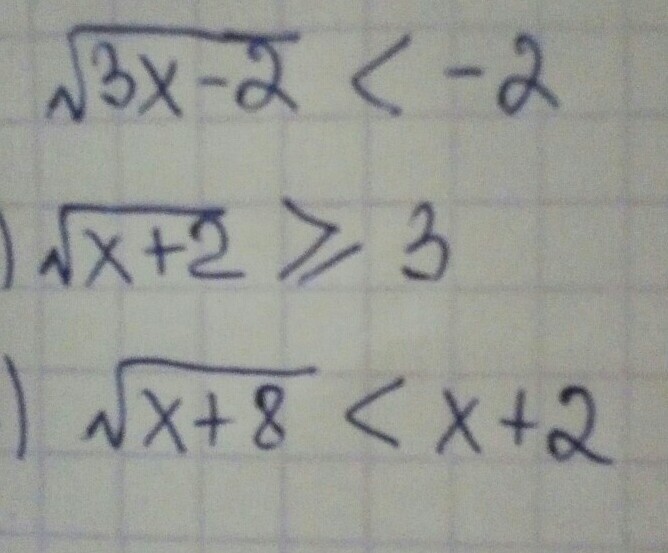 √3x-2 < -2
) √x+2 ⩾ 3
) √x+8 < x+2